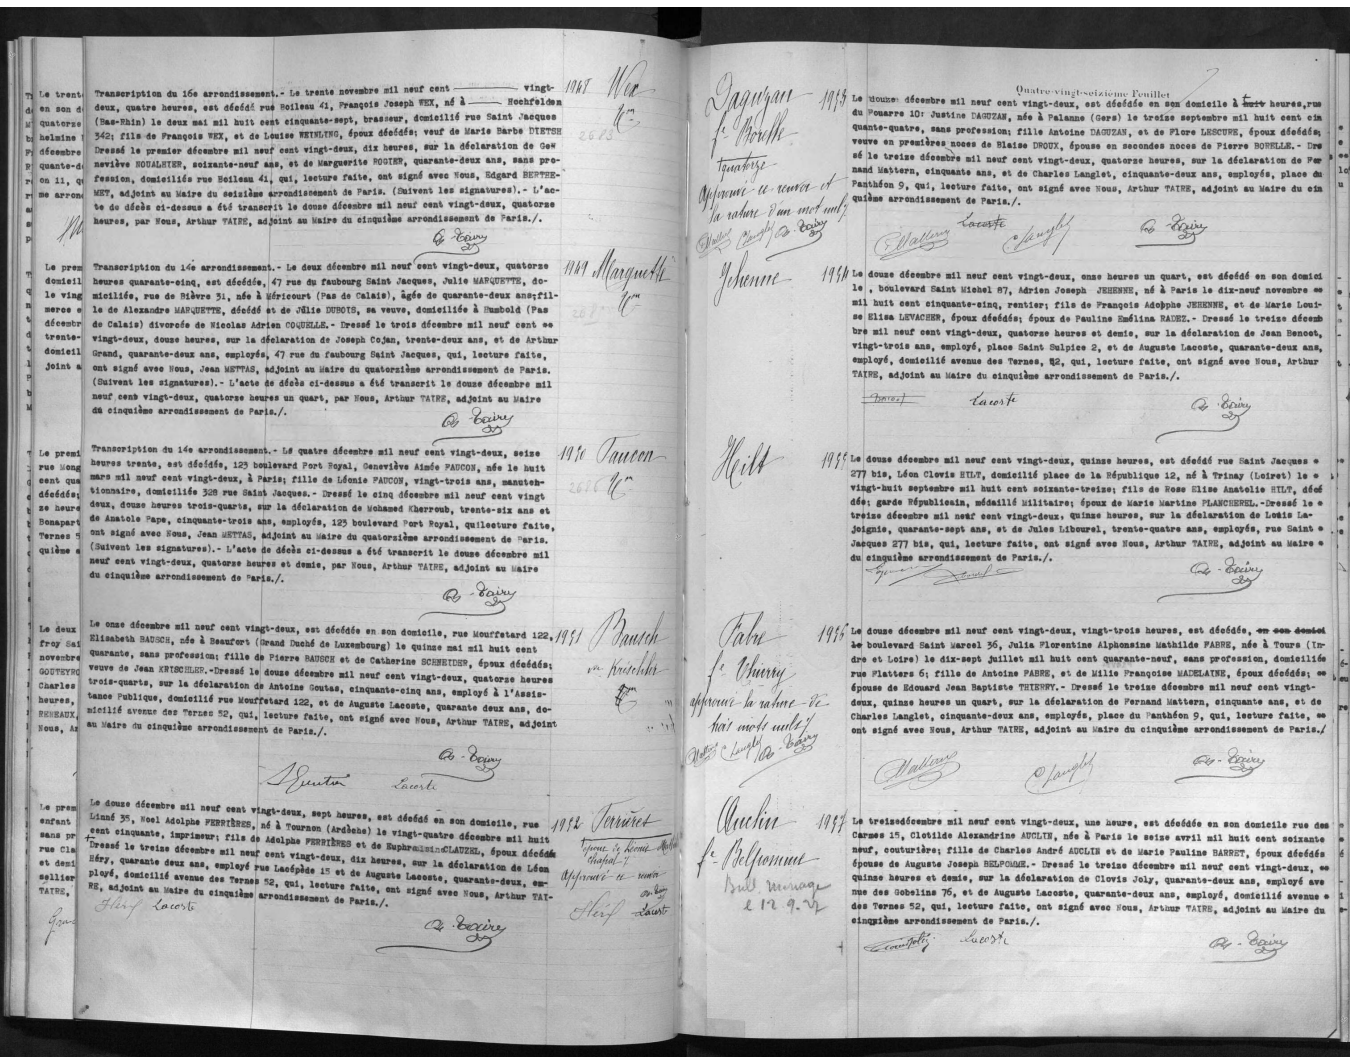 1948 Wex
Transcription du 16e arrondissement.- Le trente novembre mil neuf cent vingt-
deux, quatre heures, est décédé rue Boileau 41, François Joseph WEX, né à Hochfelden
(Bas-Rhin) le deux mai mil huit cent cinquante-sept, brasseur, domicilié rue Saint Jacques
342; fils de François WEX, et de Louise WEINLING, époux décédés; veuf de Marie Barbe DIETSH
Dressé le premier décembre mil neuf cent vingt-deux, dix heures, sur la déclaration de Gen
neviève NOUALHIER, soixante-neuf ans, et de Marguerite ROGIER, quarante-deux ans, sans pro-
fession, domiciliés rue Boileau 41, qui, lecture faite, ont signé avec Nous, Edgard BERTHE-
MET, adjoint au Maire du seizième arrondissement de Paris. (Suivent les signatures).- L'ac-
te de décès ci-dessus a été transcrit le douze décembre mil neuf cent vingt-deux, quatorze
heures, par Nous, Arthur TAIRE, adjoint au Maire du cinquième arrondissement de Paris./.
1949 Marquette
Transcription du 14e arrondissement.- Le deux décembre mil neuf cent vingt-deux, quatorze
heures quarante-cinq, est décédée, 47 rue du faubourg Saint Jacques, Julie MARQUETTE, do-
miciliée, rue de Bièvre 31, née à Méricourt (Pas de Calais), âgée de quarante-deux ans;fil-
le de Alexandre MARQUETTE, décédé et de Julie DUBOIS, sa veuve, domiciliée à Humbold (Pas
de Calais) divorcée de Nicolas Adrien COQUELLE.- Dressé le trois décembre mil neuf cent
vingt-deux, douze heures, sur la déclaration de Joseph Cojan, trente-deux ans, et de Arthur
Grand, quarante-deux ans, employés, 47 rue du faubourg Saint Jacques, qui, lecture faite,
ont signé avec Nous, Jean METTAS, adjoint au Maire du quatorzième arrondissement de Paris.
(Suivent les signatures).- L'acte de décès ci-dessus a été transcrit le douze décembre mil
neuf cent vingt-deux, quatorze heures un quart, par Nous, Arthur TAIRE, adjoint au Maire
du cinquième arrondissement de Paris./.
1950 Faucon
Transcription du 14e arrondissement.- Le quatre décembre mil neuf cent vingt-deux, seize
heures trente, est décédée, 123 boulevard Port Royal, Geneviève Aimée FAUCON, née le huit
mars mil neuf cent vingt-deux, à Paris; fille de Léonie FAUCON, vingt-trois ans, manuten-
tionnaire, domiciliée 328 rue Saint Jacques.- Dressé le cinq décembre mil neuf cent vingt
deux, douze heures trois-quarts, sur la déclaration de Mohamed Kherroub, trente-six ans et
de Anatole Pape, cinquante-trois ans, employés, 123 boulevard Port Royal, quilecture faite,
ont signé avec Nous, Jean METTAS, adjoint au Maire du quatorzième arrondissement de Paris.
(Suivent les signatures).- L'acte de décès ci-dessus a été transcrit le douze décembre mil
neuf cent vingt-deux, quatorze heures et demie, par Nous, Arthur TAIRE, adjoint au Maire
du cinquième arrondissement de Paris./.
1951 Bausch
ve Krischler
Le onze décembre mil neuf cent vingt-deux, est décédée en son domicile, rue Mouffetard 122,
Elisabeth BAUSCH, née à Beaufort (Grand Duché de Luxembourg) le quinze mai mil huit cent
quarante, sans profession; fille de Pierre BAUSCH et de Catherine SCHNEIDER, époux décédés;
veuve de Jean KRISCHLER.-Dressé le douze décembre mil neuf cent vingt-deux, quatorze heures
trois-quarts, sur la déclaration de Antoine Goutas, cinquante-cinq ans, employé à l'Assis-
tance Publique, domicilié rue Mouffetard 122, et de Auguste Lacoste, quarante deux ans, do-
micilié avenue des Ternes 52, qui, lecture faite, ont signé avec Nous, Arthur TAIRE, adjoint
au Maire du cinquième arrondissement de Paris./.
Lacoste
1952 Ferrières
Le douze décembre mil neuf cent vingt-deux, sept heures, est décédé en son domicile, rue
Linné 35, Noel Adolphe FERRIÈRES, né à Tournon (Ardèche) le vingt-quatre décembre mil huit
cent cinquante, imprimeur; fils de Adolphe FERRIÈRES et de Euphrasie CLAUZEL, époux décédés
Dressé le treize décembre mil neuf cent vingt-deux, dix heures, sur la déclaration de Léon
Héry, quarante deux ans, employé rue Lacépède 15 et de Auguste Lacoste, quarante-deux, em-
ployé, domicilié avenue des Ternes 52, qui, lecture faite, ont signé avec Nous, Arthur TAI-
RE, adjoint au Maire du cinquième arrondissement de Paris./.
approuvé ce renvoi
Héry Lacoste
Quatre-vingt-seizième Feuillet
Daguzan 1953
fe Borelle
quatorze
Approuvé ce renvoi et
la rature d'un mot nul
Le douze décembre mil neuf cent vingt-deux, est décédée en son domicile à huit heures,rue
du Fouarre 10: Justine DAGUZAN, née à Palanne (Gers) le treize septembre mil huit cent cin
quante-quatre, sans profession; fille Antoine DAGUZAN, et de Flore LESCURE, époux décédés;
veuve en premières noces de Blaise DROUX, épouse en secondes noces de Pierre BORELLE.- Dres
sé le treize décembre mil neuf cent vingt-deux, quatorze heures, sur la déclaration de Fer
nand Mattern, cinquante ans, et de Charles Langlet, cinquante-deux ans, employés, place du
Panthéon 9, qui, lecture faite, ont signé avec Nous, Arthur TAIRE, adjoint au Maire du cin
quième arrondissement de Paris./.
Mattern Lacoste Langlet
Jehenne 1954
Le douze décembre mil neuf cent vingt-deux, onze heures un quart, est décédé en son domici
le , boulevard Saint Michel 87, Adrien Joseph JEHENNE, né à Paris le dix-neuf novembre
mil huit cent cinquante-cinq, rentier; fils de François Adolphe JEHENNE, et de Marie Loui-
se Elisa LEVACHER, époux décédés; époux de Pauline Emélina RADEZ.- Dressé le treize décem
bre mil neuf cent vingt-deux, quatorze heures et demie, sur la déclaration de Jean Bencot,
vingt-trois ans, employé, place Saint Sulpice 2, et de Auguste Lacoste, quarante-deux ans,
employé, domicilié avenue des Ternes, 52, qui, lecture faite, ont signé avec Nous, Arthur
TAIRE, adjoint au Maire du cinquième arrondissement de Paris./.
Lacoste
Heilt 1955
Le douze décembre mil neuf cent vingt-deux, quinze heures, est décédé rue Saint Jacques
277 bis, Léon Clovis HILT, domicilié place de la République 12, né à Trinay (Loiret) le
vingt-huit septembre mil huit cent soixante-treize; fils de Rose Elise Anatolie HILT, décé
dés; garde Républicain, médaillé Militaire; époux de Marie Martine PLANCHEREL.-Dressé le
treize décembre mil neuf cent vingt-deux; quinze heures, sur la déclaration de Louis La-
joignie, quarante-sept ans, et de Jules Libourel, trente-quatre ans, employés, rue Saint
Jacques 277 bis, qui, lecture faite, ont signé avec Nous, Arthur TAIRE, adjoint au Maire
du cinquième arrondissement de Paris./.
Fabre 1956
fe Thierry
approuvé la rature de
trois mots nuls
Le douze décembre mil neuf cent vingt-deux, vingt-trois heures, est décédée, en son domici
le boulevard Saint Marcel 36, Julia Florentine Alphonsine Mathilde FABRE, née à Tours (In-
dre et Loire) le dix-sept juillet mil huit cent quarante-neuf, sans profession, domiciliée
rue Flatters 6; fille de Antoine FABRE, et de Milie Françoise MADELAINE, époux décédés;
épouse de Edouard Jean Baptiste THIERRY.- Dressé le treize décembre mil neuf cent vingt-
deux, quinze heures un quart, sur la déclaration de Fernand Mattern, cinquante ans, et de
Charles Langlet, cinquante-deux ans, employés, place du Panthéon 9, qui, lecture faite,
ont signé avec Nous, Arthur TAIRE, adjoint au Maire du cinquième arrondissement de Paris./
Mattern Langlet
Auclin 1957
fe Belpomme
Bull. mariage
le 12.9.22
Le treizedécembre mil neuf cent vingt-deux, une heure, est décédée en son domicile rue des
Carmes 15, Clotilde Alexandrine AUCLIN, née à Paris le seize avril mil huit cent soixante
neuf, couturière; fille de Charles André AUCLIN et de Marie Pauline BARRET, époux décédés
épouse de Auguste Joseph BELPOMME.- Dressé le treize décembre mil neuf cent vingt-deux,
quinze heures et demie, sur la déclaration de Clovis Joly, quarante-deux ans, employé ave
nue des Gobelins 76, et de Auguste Lacoste, quarante-deux ans, employé, domicilié avenue
des Ternes 52, qui, lecture faite, ont signé avec Nous, Arthur TAIRE, adjoint au Maire du
cinquième arrondissement de Paris./.
Lacoste